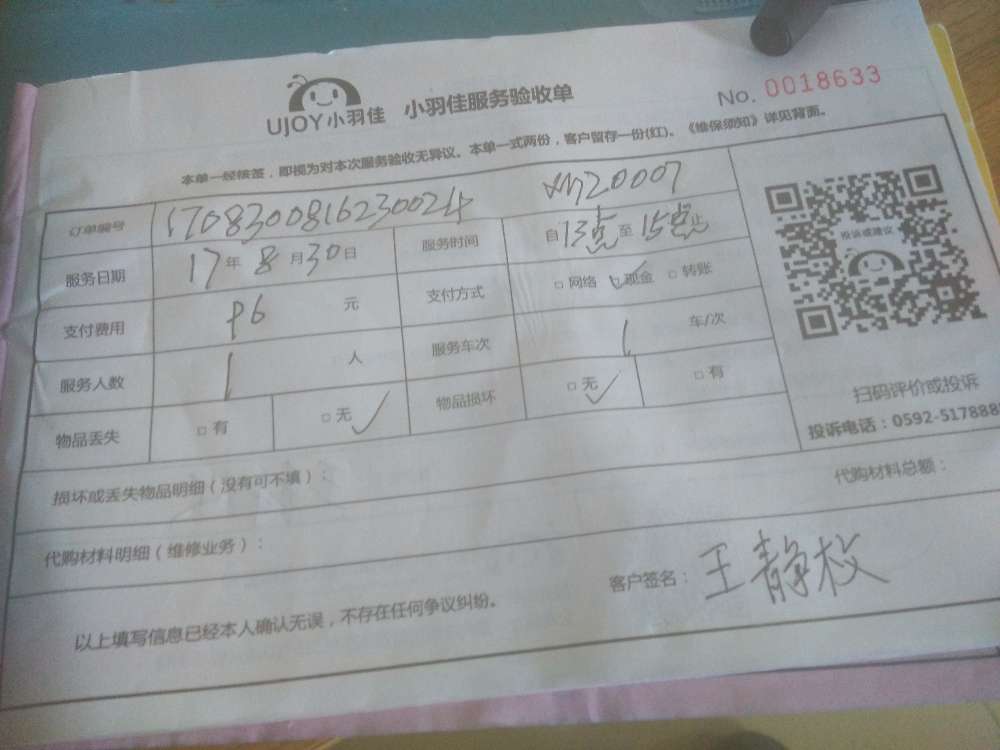 UJOY小羽佳 小羽佳服务验收单 No. 0018633
本单一经核签，即视为对本次服务验收无异议。本单一式两份，客户留存一份(红)。《维保须知》详见背面。
订单编号 1708300816230024 20007
服务日期 17年8月30日 服务时间 自13点至15点止
支付费用 96 元 支付方式 □网络 ☑现金 □转账
服务人数 1 人 服务车次 1 车/次
物品丢失 □有 □无✓ 物品损坏 □无✓ □有
投诉或建议
扫码评价或投诉
投诉电话：0592-517888
损坏或丢失物品明细（没有可不填）：
代购材料明细（维修业务）： 代购材料总额：
客户签名：王静枚
以上填写信息已经本人确认无误，不存在任何争议纠纷。